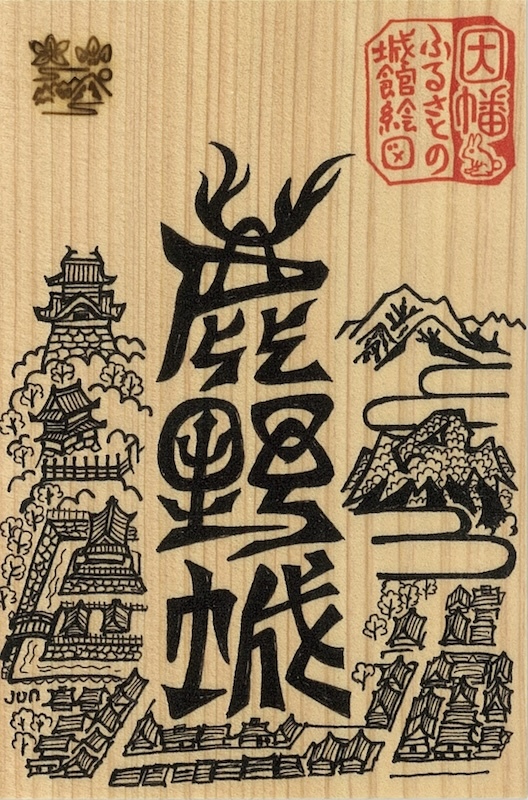 因幡
ふるさとの
城館絵図
鹿野城
JUN